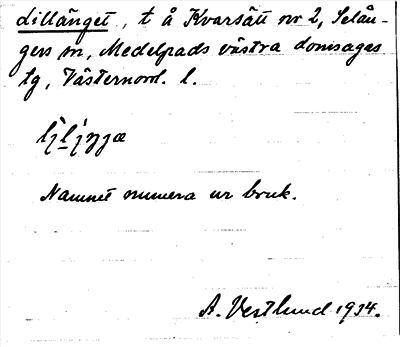 dillänget, t å Kvarsätt nr 2, Selån-
gers sn, Medelpads västra domsagas
tg, Västernorrl. l.
Namnet numera ur bruk.
A. Vestlund 1934.